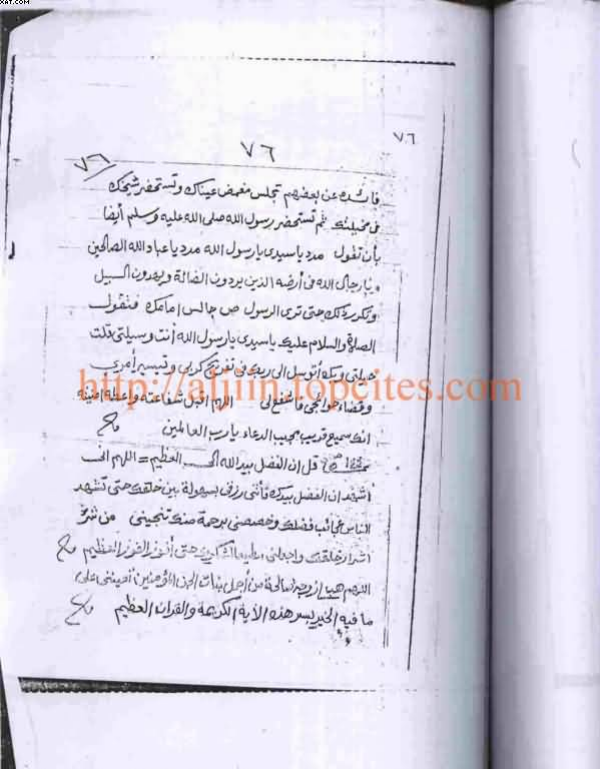 XAT.COM
٧٦
٧٦
٧٦
فائدة عن بعضهم تجلس مغمض عيناك وتستحضر شيخك
في مخيلتك ثم تستحضر رسول الله صلى الله عليه وسلم أيضا
بأن تقول مدد يا سيدى يا رسول الله مدد يا عباد الله الصالحين
ويا رجال الله فى أرضه الذين يردون الضالة ويهدون السبيل
وتكرر ذلك حتى ترى الرسول ص جالس امامك فتقول
الصلاة والسلام عليك يا سيدى يا رسول الله أنت وسيلتى قلت
حيلتى وبك أتوسل الى ربك فى تفريج كربى وتيسير أمرى
وقضاء حوائجى فاشفع لى اللهم اقبل شفاعته واعطه امنيته
انك سميع قريب مجيب الدعاء يا رب العالمين
قل ان الفضل بيد الله العظيم = اللهم انى
أشهد ان الفضل بيدك فأتنى رزقى بسهولة بين خلقك حتى تشهد
الناس عجائب فضلك وخصصنى برحمة منك تنجينى من شر
اشرار خلقك واجعلنى حتى أفوز الفوز العظيم
اللهم هب لى زوجة صالحة من أجمل بنات الجن المؤمنين تعيننى على
ما فيه الخير بسر هذه الأية الكريمة والقران العظيم
http://aljiin.topcites.com